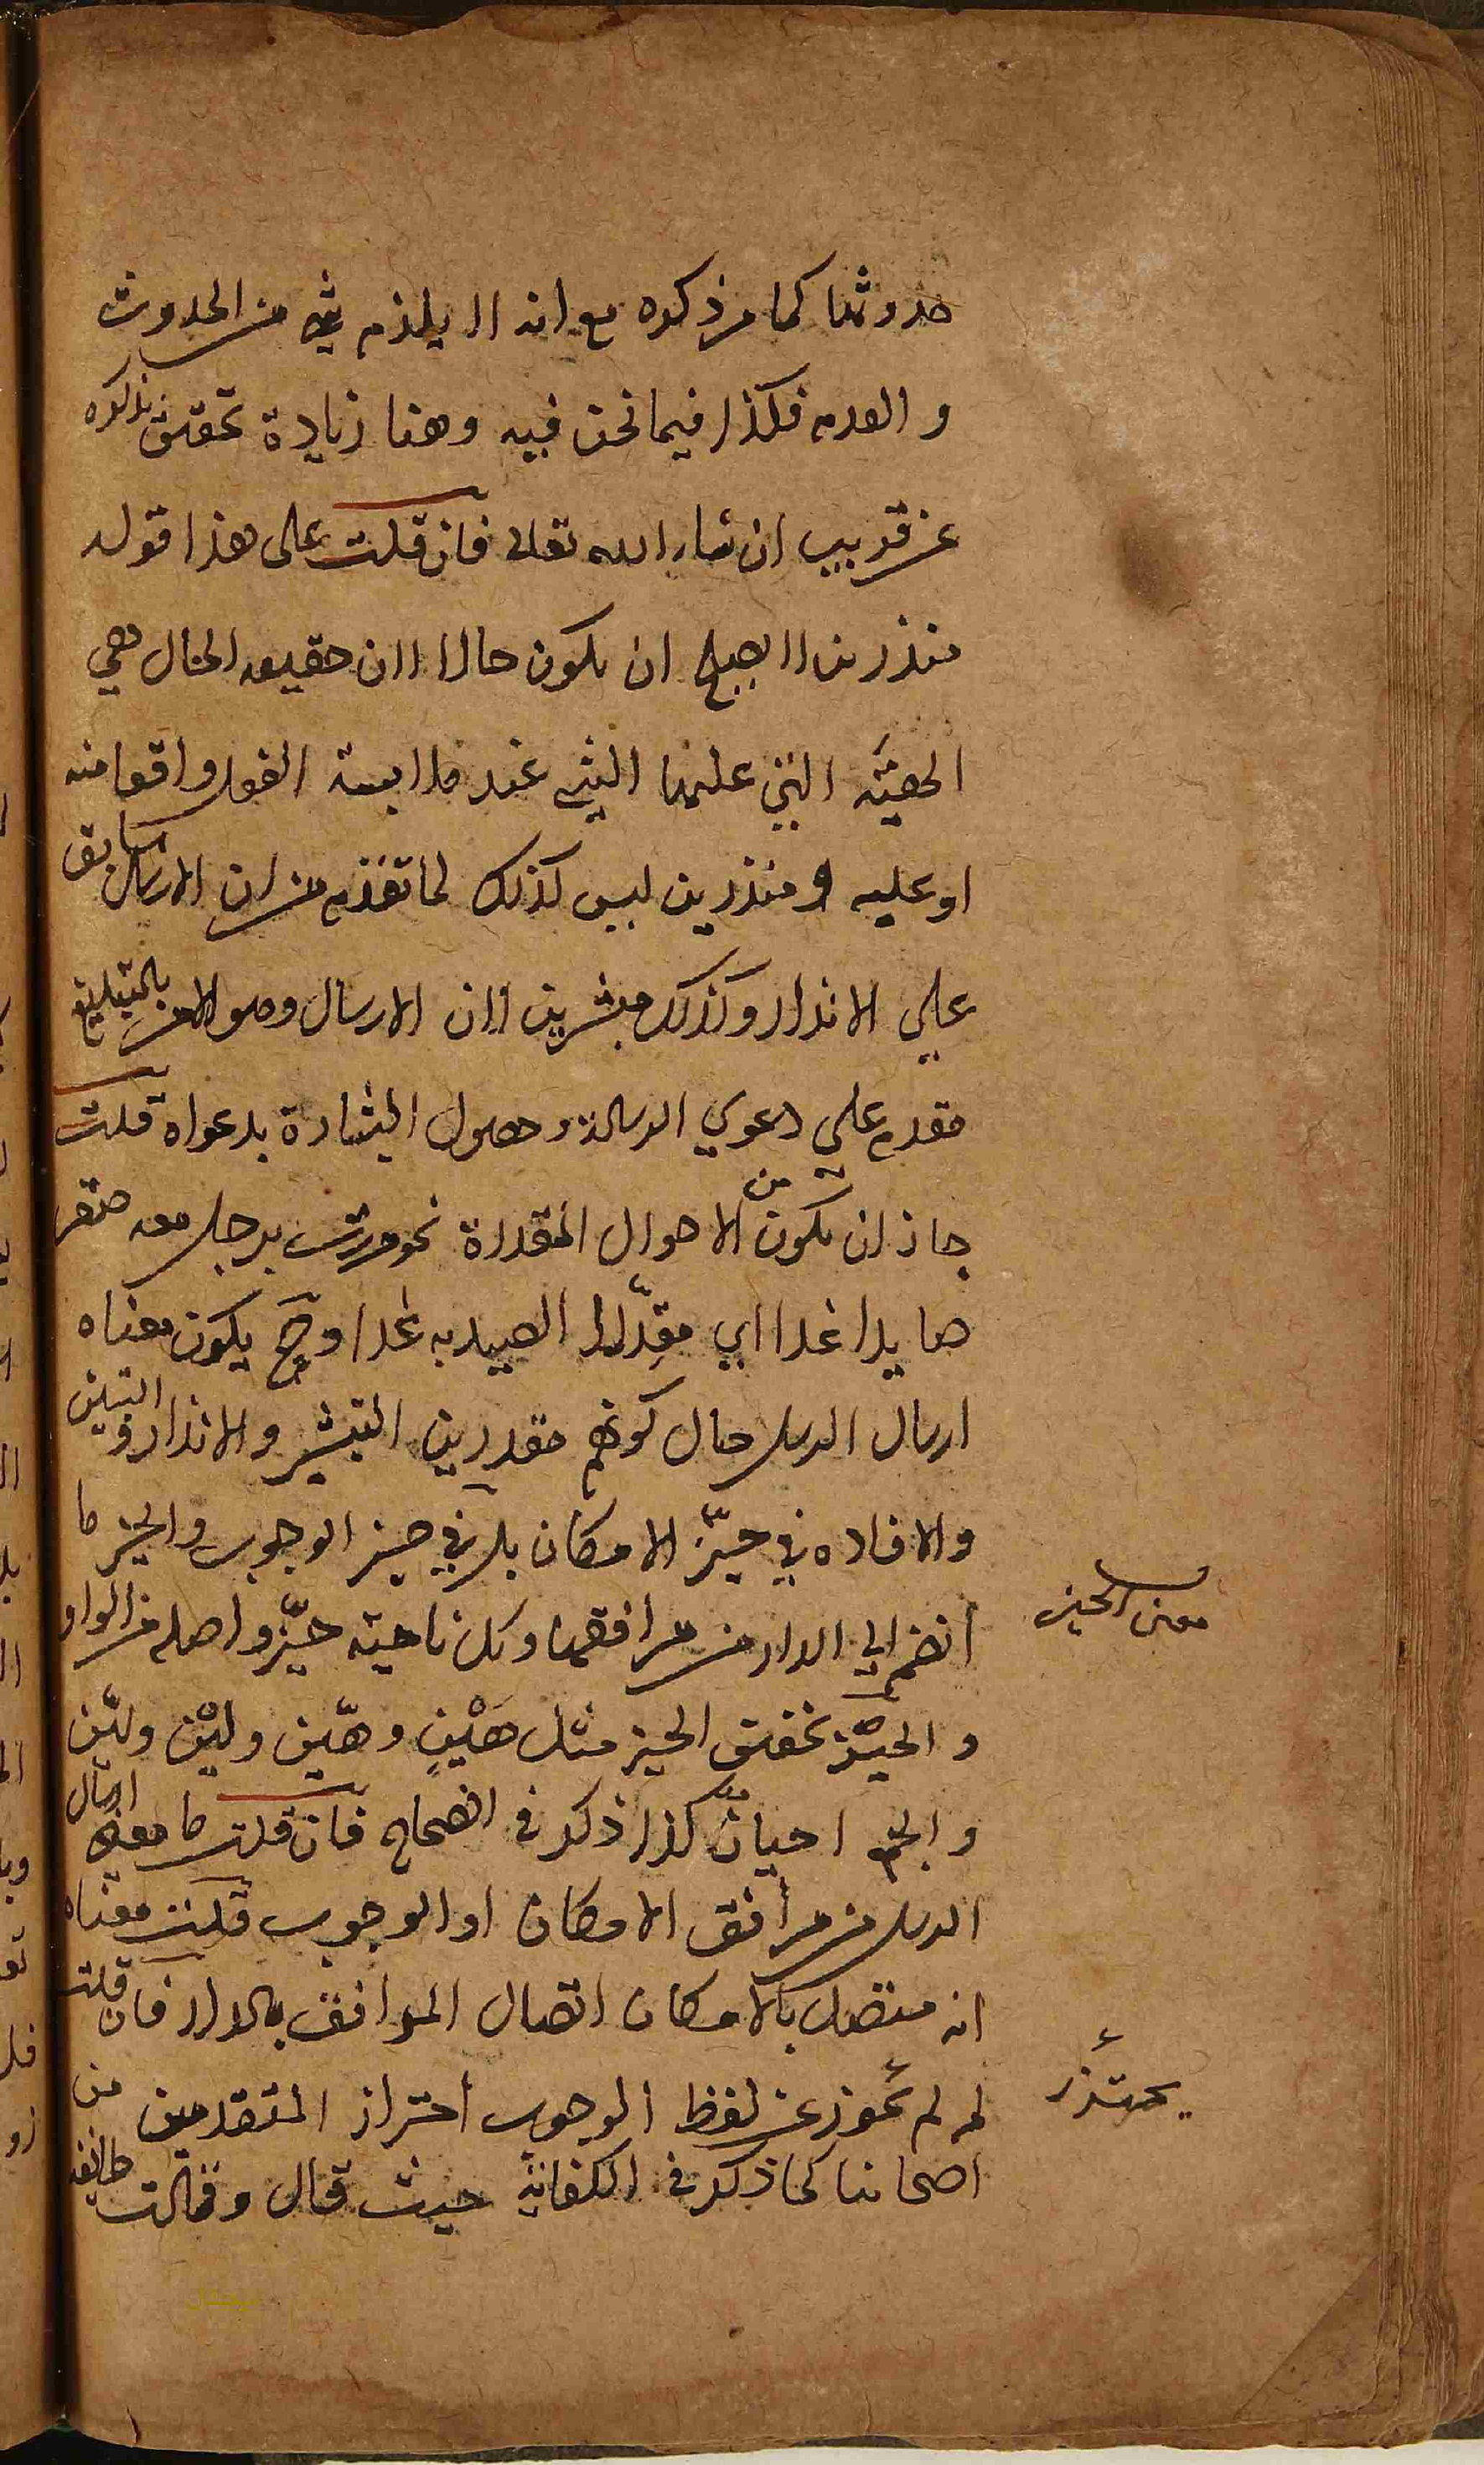 حدوثها كما مر ذكره مع انه لا يلزم شي من الحدوث
والعدم فكذا فيما نحن فيه وهنا زيادة تحقيق نذكره
عن قريب ان شاء الله تعالى فان قلت على هذا قوله
منذرين لا يصح ان يكون حالا لان حقيقه الحال هي
الهيئه التي عليها الشي عند ملابسة الفعل واقعا منه
او عليه ومنذرين ليس كذلك لما تقدم من ان الارسال سابق
علي الانذار وكذلك مبشرين لان الارسال وهو الامر بالتبليغ
مقدم على دعوي الرسالة وحصول البشارة بدعواه قلت
جاز ان يكون من الاحوال المقدرة نحو مررت برجل معه صقر
صايدا غدا اي مقدِّرا الصيد به غدا وح يكون معناه
ارسال الرسل حال كونهم مقدرين التبشير والانذار والتبيين
والافاده في حيّز الامكان بل في حيز الوجوب والحيز ما
انضم الي الدار من مرافقها وكل ناحية حيّز واصله من الواو
والحيْز تخفيف الحيز مثل هَيْنٍ وهيّن وليْن وليّن
والجمع احياز كذا ذكر في الصحاح فان قلت ما معنى ارسال
الرسل من مرافق الامكان او الوجوب قلت معناه
انه متصل بالامكان اتصال المرافق بالدار فان قلت
لم لم يحترز عن لفظ الوجوب احتراز المتقدمين من
اصحابنا كما ذكر في الكفاية حيث قال وقالت طائفة
معنى الحيز
يحترز